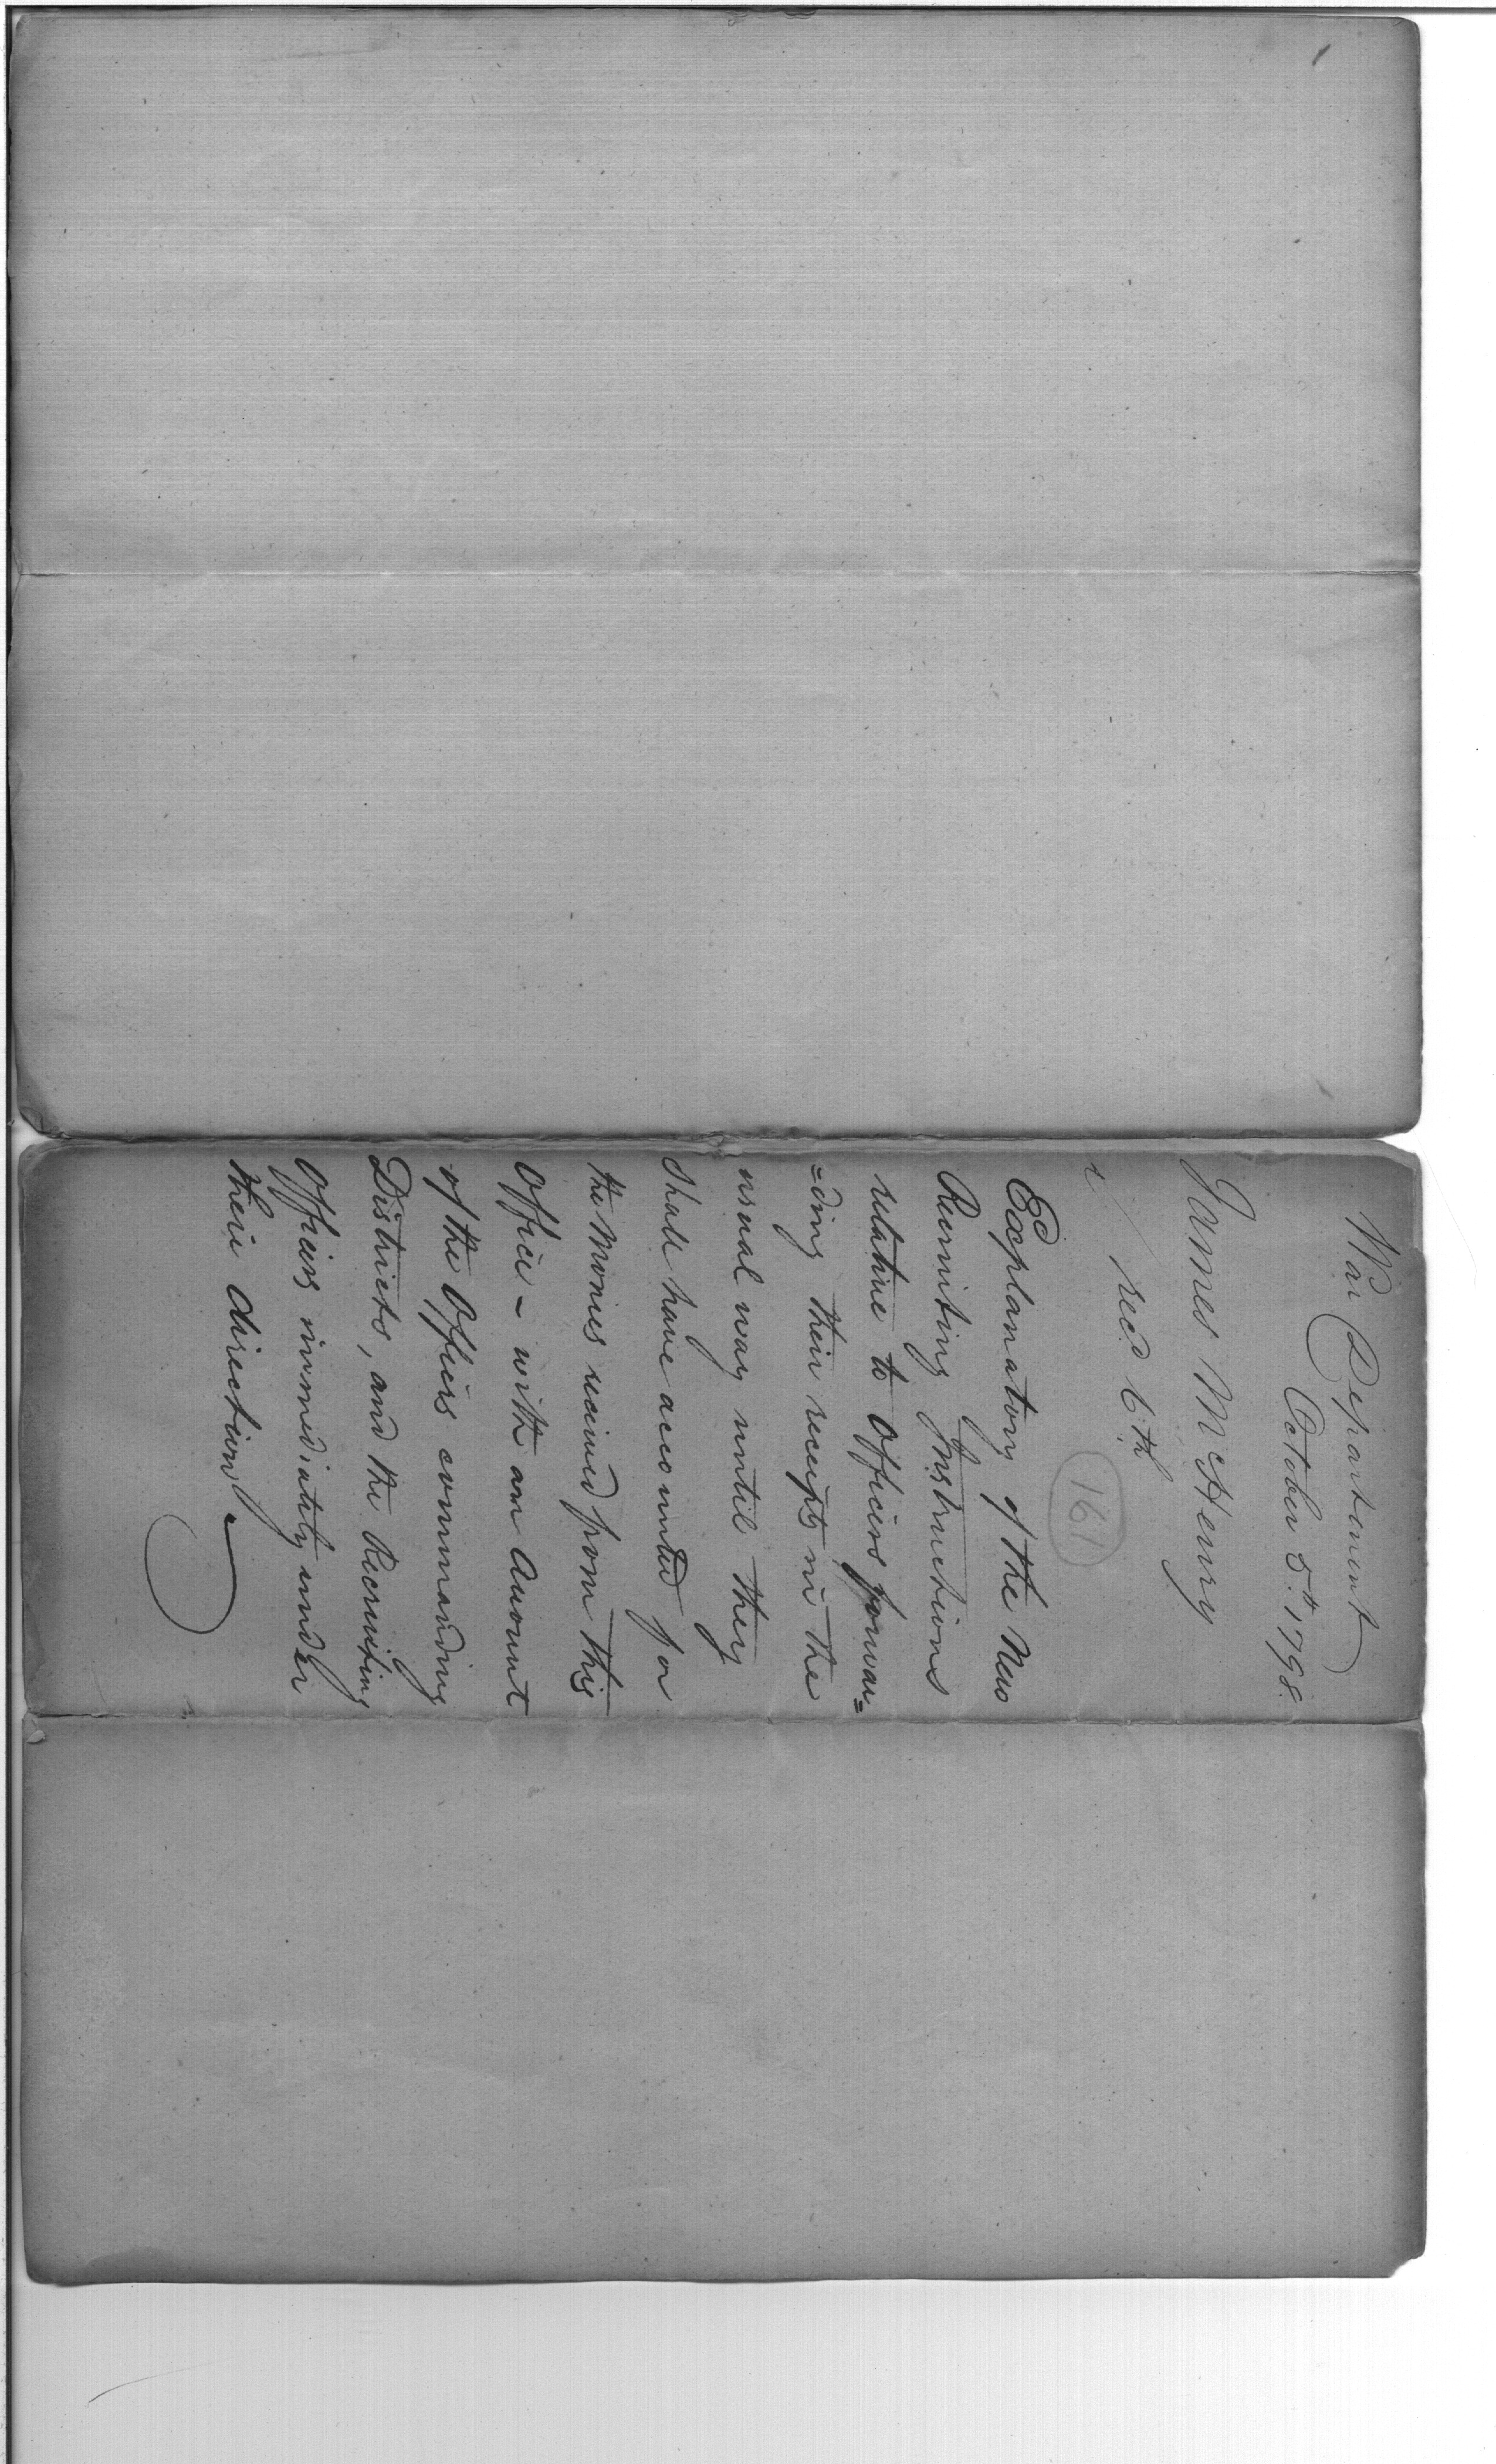 War Department
October 5th 1798.
James McHenry
recd 6th
161
Explanatory of the New
Recruiting Instructions
relative to Officers forwar=
=ding their receipts in the
usual way until they
shall have accounted for
the Monies received from this
Office - with an Account
of the Officers commanding
Districts, and the Recruiting
Officers immediately under
their direction.